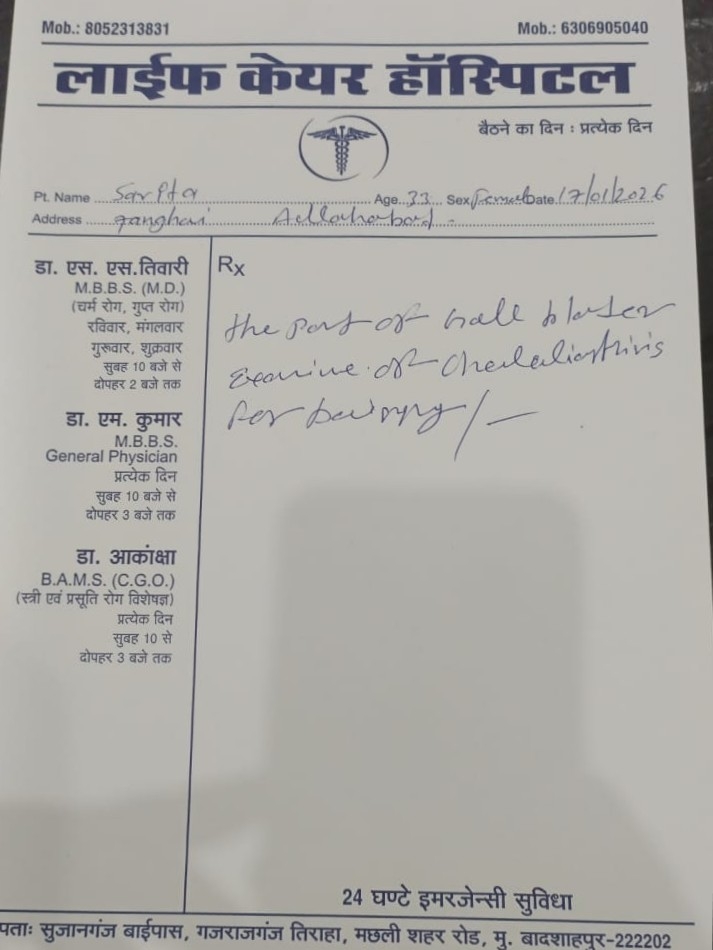 Mob.: 8052313831
Mob.: 6306905040
लाईफ केयर हॉस्पिटल
बैठने का दिन : प्रत्येक दिन
Pt. Name Age 33 Sex Female Date 17/01/2026
Address
डा. एस. एस.तिवारी
M.B.B.S. (M.D.)
(चर्म रोग, गुप्त रोग)
रविवार, मंगलवार
गुरूवार, शुक्रवार
सुबह 10 बजे से
दोपहर 2 बजे तक
डा. एम. कुमार
M.B.B.S.
General Physician
प्रत्येक दिन
सुबह 10 बजे से
दोपहर 3 बजे तक
डा. आकांक्षा
B.A.M.S. (C.G.O.)
(स्त्री एवं प्रसूति रोग विशेषज्ञ)
प्रत्येक दिन
सुबह 10 से
दोपहर 3 बजे तक
Rx
the part of gall
of
for
24 घण्टे इमरजेन्सी सुविधा
पताः सुजानगंज बाईपास, गजराजगंज तिराहा, मछली शहर रोड, मु. बादशाहपुर-222202